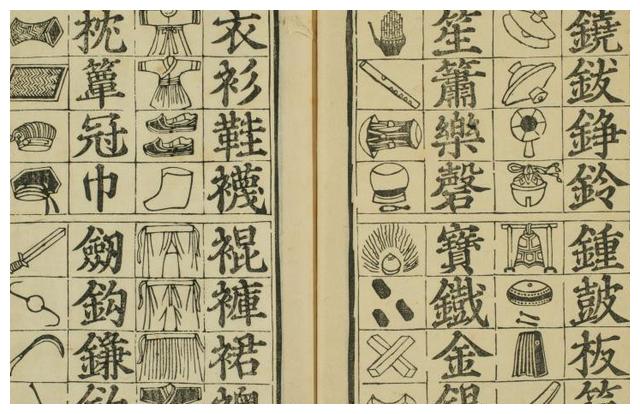 鐃鈸錚鈴鍾皷板
笙簫樂磬寶鐵金
衣衫鞋襪裩褲裙
枕簟冠巾劔鈎鎌